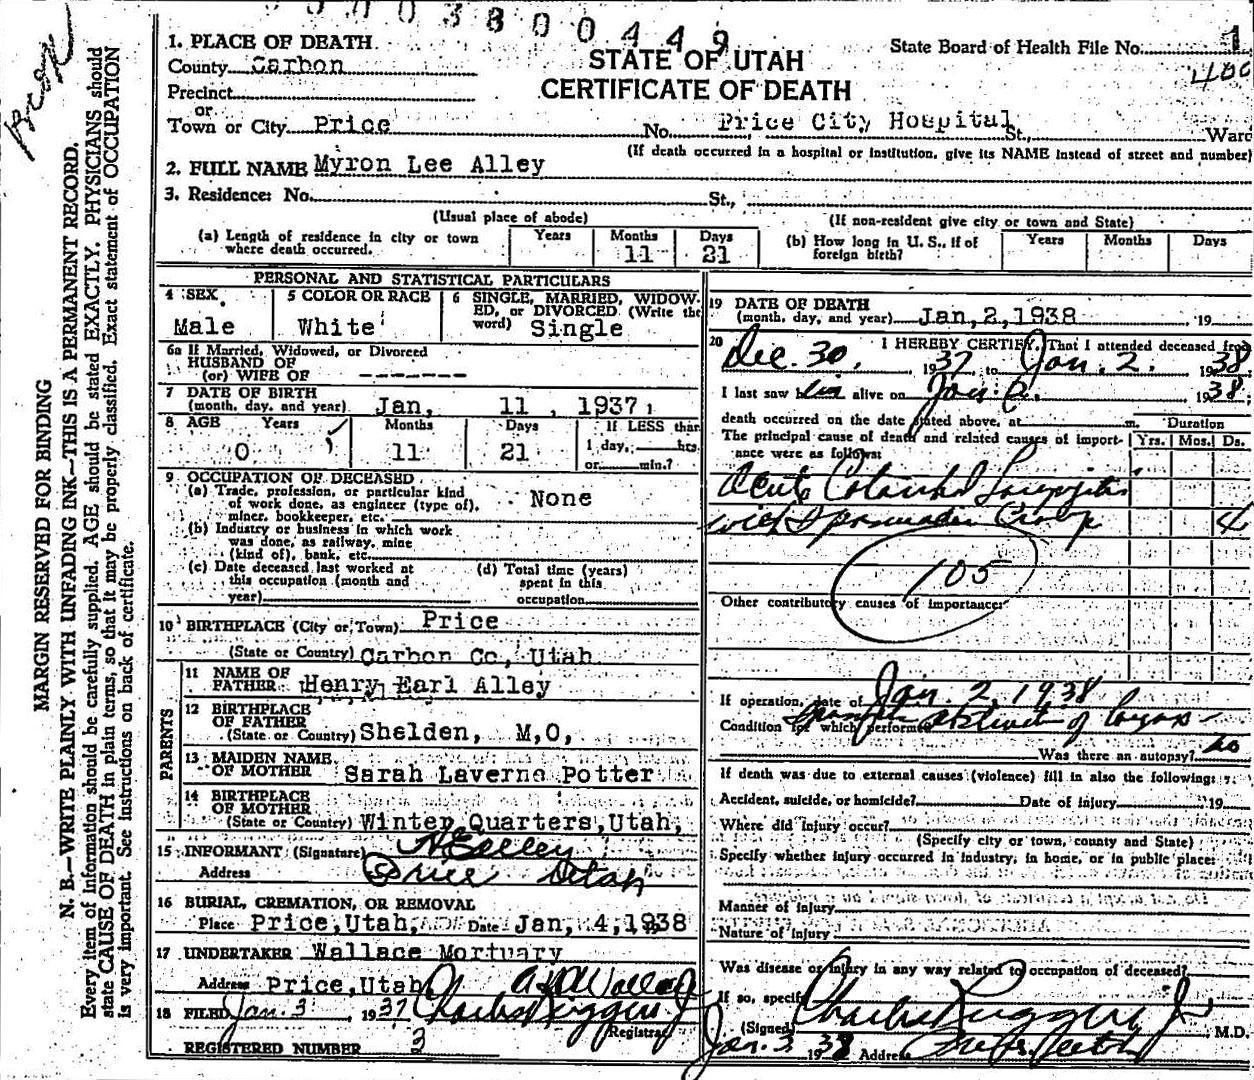 003800449
1. PLACE OF DEATH
STATE OF UTAH
CERTIFICATE OF DEATH
State Board of Health File No. 1
400
County Carbon
Precinct
or
Town or City Price No. Price City Hospital St., Ward
(If death occurred in a hospital or institution, give its NAME instead of street and number)
2. FULL NAME Myron Lee Alley
3. Residence: No. St.,
(Usual place of abode) (If non-resident give city or town and State)
(a) Length of residence in city or town where death occurred. Years Months 11 Days 21
(b) How long in U. S., if of foreign birth? Years Months Days
PERSONAL AND STATISTICAL PARTICULARS
4 SEX Male
5 COLOR OR RACE White
6 SINGLE, MARRIED, WIDOWED, or DIVORCED (Write the word) Single
6a If Married, Widowed, or Divorced
HUSBAND OF
(or) WIFE OF -------
7 DATE OF BIRTH
(month, day, and year) Jan, 11, 1937,
8 AGE Years 0 Months 11 Days 21 If LESS than 1 day, hrs. or min.?
9 OCCUPATION OF DECEASED
(a) Trade, profession, or particular kind of work done, as engineer (type of), miner, bookkeeper, etc. None
(b) Industry or business in which work was done, as railway, mine (kind of), bank, etc.
(c) Date deceased last worked at this occupation (month and year)
(d) Total time (years) spent in this occupation
10 BIRTHPLACE (City or Town) Price
(State or Country) Carbon Co, Utah
PARENTS
11 NAME OF FATHER Henry Earl Alley
12 BIRTHPLACE OF FATHER
(State or Country) Shelden, M,O,
13 MAIDEN NAME OF MOTHER Sarah Laverne Potter
14 BIRTHPLACE OF MOTHER
(State or Country) Winter Quarters, Utah,
15 INFORMANT (Signature) H E Alley
Address Price Utah
16 BURIAL, CREMATION, OR REMOVAL
Place Price, Utah, Date Jan, 4, 1938
17 UNDERTAKER Wallace Mortuary
Address Price, Utah
18 FILED Jan. 3, 1937 Charles Ruggeri Jr
Registrar
REGISTERED NUMBER 3
19 DATE OF DEATH
(month, day, and year) Jan, 2, 1938 , 19
20 I HEREBY CERTIFY, That I attended deceased from
Dec. 30, 1937 to Jan. 2. 1938;
I last saw him alive on Jan. 2, 1938;
death occurred on the date stated above, at m. Duration
The principal cause of death and related causes of importance were as follows: Yrs. Mos. Ds.
Acute Catarrhal Laryngitis
with Spasmodic Croup 4
105
Other contributory causes of importance:
If operation, date of Jan. 2, 1938
Condition for which performed of larynx
Was there an autopsy? No
If death was due to external causes (violence) fill in also the following:
Accident, suicide, or homicide? Date of injury 19
Where did injury occur?
(Specify city or town, county and State)
Specify whether injury occurred in industry, in home, or in public place:
Manner of injury
Nature of injury
Was disease or injury in any way related to occupation of deceased?
If so, specify
(Signed) Charles Ruggeri Jr M.D.
Jan. 3 1938 Address Price, Utah
MARGIN RESERVED FOR BINDING
N. B.—WRITE PLAINLY WITH UNFADING INK—THIS IS A PERMANENT RECORD.
Every item of information should be carefully supplied. AGE should be stated EXACTLY. PHYSICIANS should
state CAUSE OF DEATH in plain terms, so that it may be properly classified. Exact statement of OCCUPATION
is very important. See instructions on back of certificate.